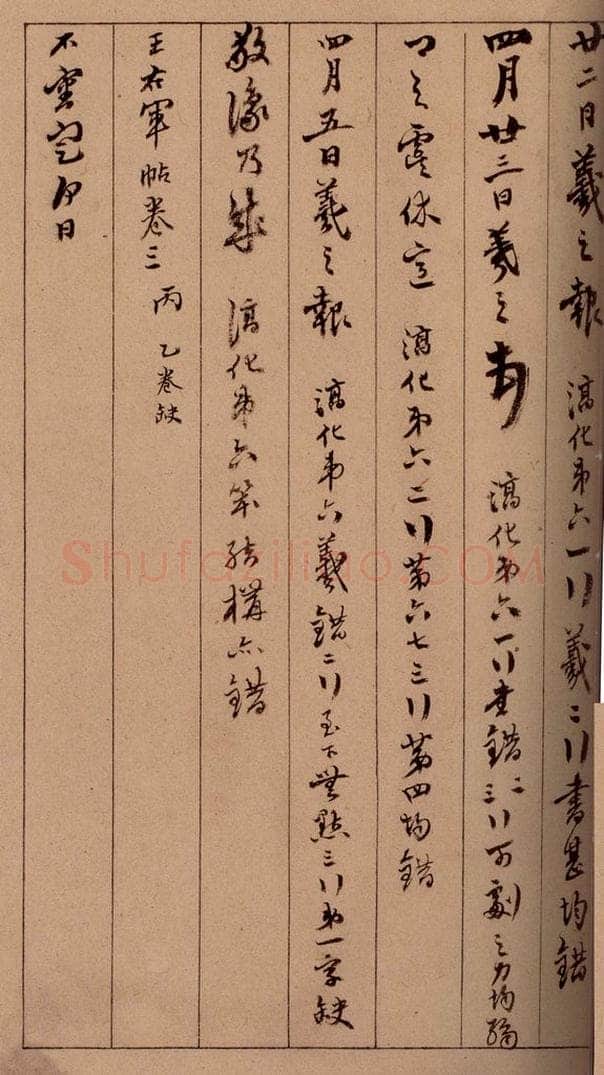 廿二日羲之報 淳化第六一行羲二行書甚均錯
四月廿三日羲之 淳化第六一行書錯二三行可劇之力均
之 休 淳化第六二行第六七三行第四均錯
四月五日羲之報 淳化第六羲錯二行至下無點三行第一字缺
敬豫乃 淳化第六 結構亦錯
王右軍帖卷三 丙 乙卷缺
不 日
Shufaziliao.COM